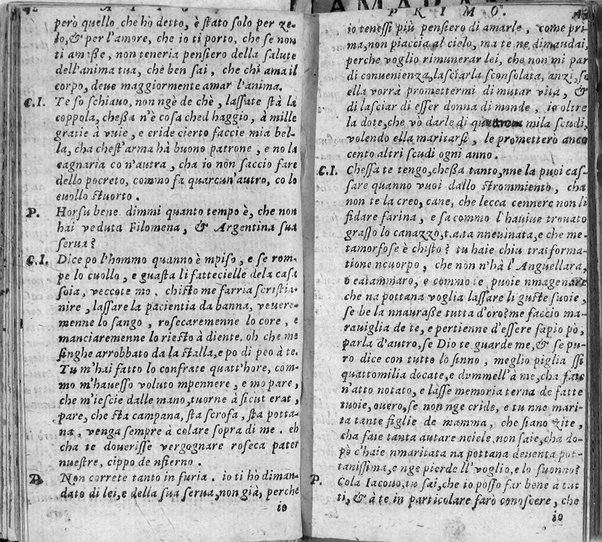 PRIMO.
però quello che hò detto, è stato solo per ze-
lo, & per l'amore, che io ti porto, che se non
ti amasse, non teneria pensiero della salute
dell'anima tua, che ben sai, che chi ama il
corpo, deue maggiormente amar l'anima.
C.I. Te so schiauo, non ngè de chè, lassate stà la
coppola, chessa n'è cosa ched haggio, à mille
gratie à vuie, e cride cierto faccie mia bel-
la, cha chest'arma hà buono patrone, e no la
cagnaria co n'autra, cha io non faccio fare
dello pocreto, commo fa quarcun'autro, co lo
cuollo stuorto.
P. Horsu bene dimmi quanto tempo è, che non
hai veduta Filomena, & Argentina sua
serua?
C.I. Dice po l'hommo quanno è mpiso, e se rom-
pe lo cuollo, e guasta li fattecielle della casa
soia, veccote mo. chisto me farria scristia-
nire, lassare la pacientia da banna, veuere-
menne lo sango, rosecaremenne lo core, e
manciaremenne lo riesto à diente. oh che me
singhe arrobbato da la stalla, e po di peo à te.
Tu m'hai fatto lo confrate quatt'hore, com-
mo m'hauesso voluto mpennere, e mo pare,
che m'iescie dalle mano, tuorne à sicut erat,
pare, che sta campana, sta scrofa, sta potta-
na, venga sempre à colare sopra di me. eh
cha te doueriße vergognare roseca pater
nuestre, cippo de nfierno.
P. Non correte tanto in furia. io ti hò diman-
dato di lei, e della sua serua, non già, perche
io
io tenessi più pensiero di amarle, come pri-
ma, non piaccia al cielo, ma te ne dimandai,
perche voglio rimunerar lei, che non mi par
di conuenienza, lasciarla sconsolata, anzi, se
ella vorrà promettermi di mutar vita, &
di lasciar di esser donna di monde, io oltre
la dote, che vò darle di mila scudi,
volendo ella maritarsi, le prometterò anco
cento altri scudi ogni anno.
C.I. Chessa te tengo, chessa tanto, nne la puoi cas-
sare quanno vuoi dallo strommiento, cha
non te la creo, cane, che lecca cennere non li
fidare farina, e sa commo l'hauiue trouato
grasso lo canazzo, nneuinata, e che me-
tamorfose è chisto? tu haie chiu trasforma-
tione ncuorpo, che non n'hà l'Anguellara,
o calammaro, e commo te puoie nmagenare
che na pottana voglia lassare li guste suoie,
se be la nnaurasse tutta d'oro? me faccio ma-
rauiglia de te, e pertienne d'essere sapio pò,
parla d'autro, se Dio te guarde me, & se pu-
ro dice con tutto lo sinno, meglio piglia sti
quattomilia docate, e dummell'à me, cha fatte
n'atto notato, e lasse memoria terna de fatte
tuoie, ouero, se non nge cride, e tu nno mari-
ta tante figlie de mamma, che siano zite,
cha faie tanta autare nciele, non saie, cha do-
pò c'haie nmaritata na pottana deuenta pot-
tanissima, e nge pierde ll'voglio, e lo suonno?
P. Cola Iacouo, tu sai, che io posso far bene a tut
ti, & à te in particolare farò conoscere, che
io